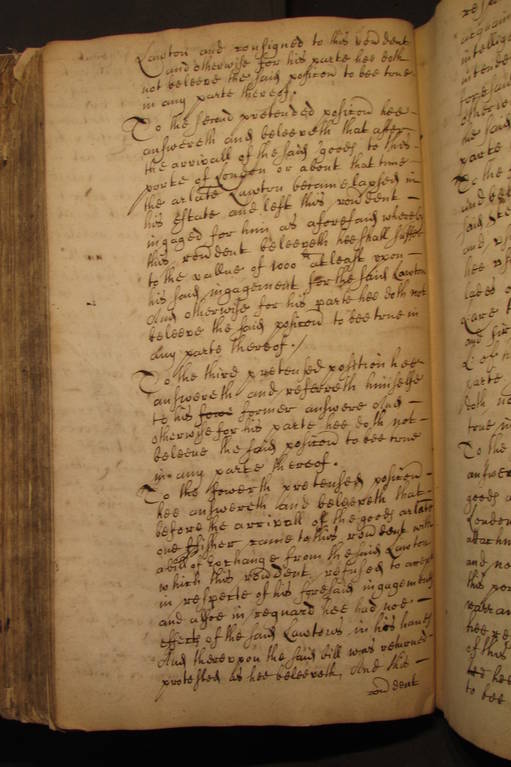 Lawton and consigned to this rendent
and otherwise for his parte hee doth
not beleeve the said position to bee true
in any parte thereof.
To the second pretended position hee
answereth and beleeveth that after
the arrivall of the said goods to this
porte of London or about that time
the arlate Lawton became lapsed in
his estate and left this rendent
ingaged for him as aforesaid whereby
this rendent beleeveth hee shall suffer
to the vallue of 1000 at least upon
his said ingagement for the said Lawton
And otherwise for his parte hee doth not
beleeve the said position to bee true in
any parte thereof./
To the third pretended position hee
answereth and referreth himselfe
to his former answere And
otherwise for his parte hee doth not
beleeve the said position to bee true
in any parte thereof.
To the fowerth pretended position
hee answereth and beleeveth that
before the arrivall of the goods arlate
one Fisher came to this rendent with
a bill of exchange from the said Lawton
which this rendent refused to accept
in respecte of his foresaid ingagements
and alsoe in reguard hee had noe
effects of the said Lawtons in his hands
And thereupon the said bill was returned
protested as hee beleeveth, And this
rendent
To the
answer
goods
London
and no
this
of this
hee
to bee